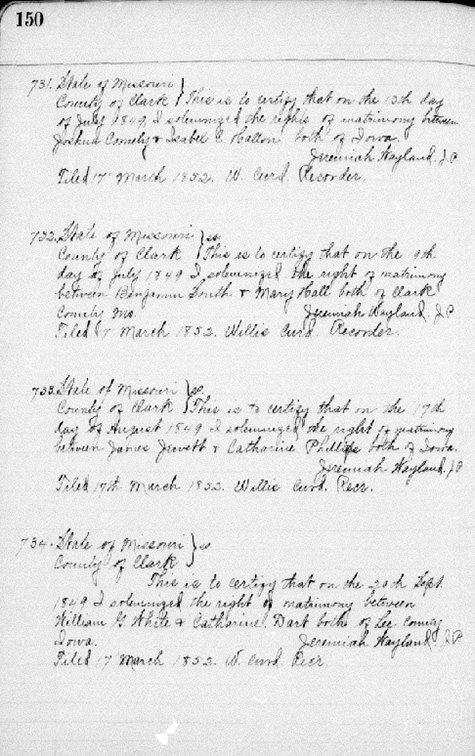 150
731. State of Missouri }
County of Clark } This is to certify that on the 13th day
of July 1849 I solemnized the rights of matrimony between
Joshua & Isabel C. both of Iowa.
Jeremiah Wayland, J.P.
Filed 17 March 1852. W. Curd. Recorder.
732. State of Missouri } ss
County of Clark } This is to certify that on the 19th
day of July 1849 I solemnized the right of matrimony
between Benjamin South & Mary Hall both of Clark
County Mo. Jeremiah Wayland, J.P.
Filed 17 March 1852. Willis Curd. Recorder.
733. State of Missouri } ss
County of Clark } This is to certify that on the 17th
day of August 1849 I solemnized the right of matrimony
between James & Catharine Phillips both of Iowa.
Jeremiah Wayland. J.P.
Filed 17th March 1852. Willis Curd. Recr.
734. State of Missouri } ss
County of Clark }
This is to certify that on the 20th Sept.
1849 I solemnized the right of matrimony between
William G. White & Catharine Dart both of Lee County
Iowa. Jeremiah Wayland. J.P.
Filed 17 March 1852. W. Curd Recr.